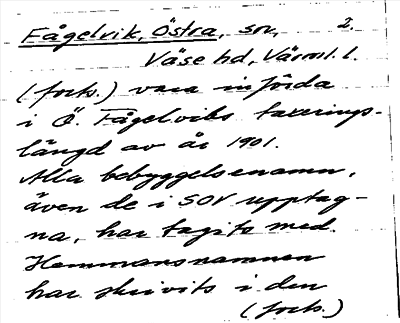 Fågelvik, Östra, sov, 2.
Väse hd, Värml. l.
(forts.) vara införda
i Ö. Fågelviks taxerings-
längd av år 1901.
Alla bebyggelsenamn,
även de i SOV upptag-
na, har tagits med.
Hemmansnamnen
har skrivits i den
(forts.)